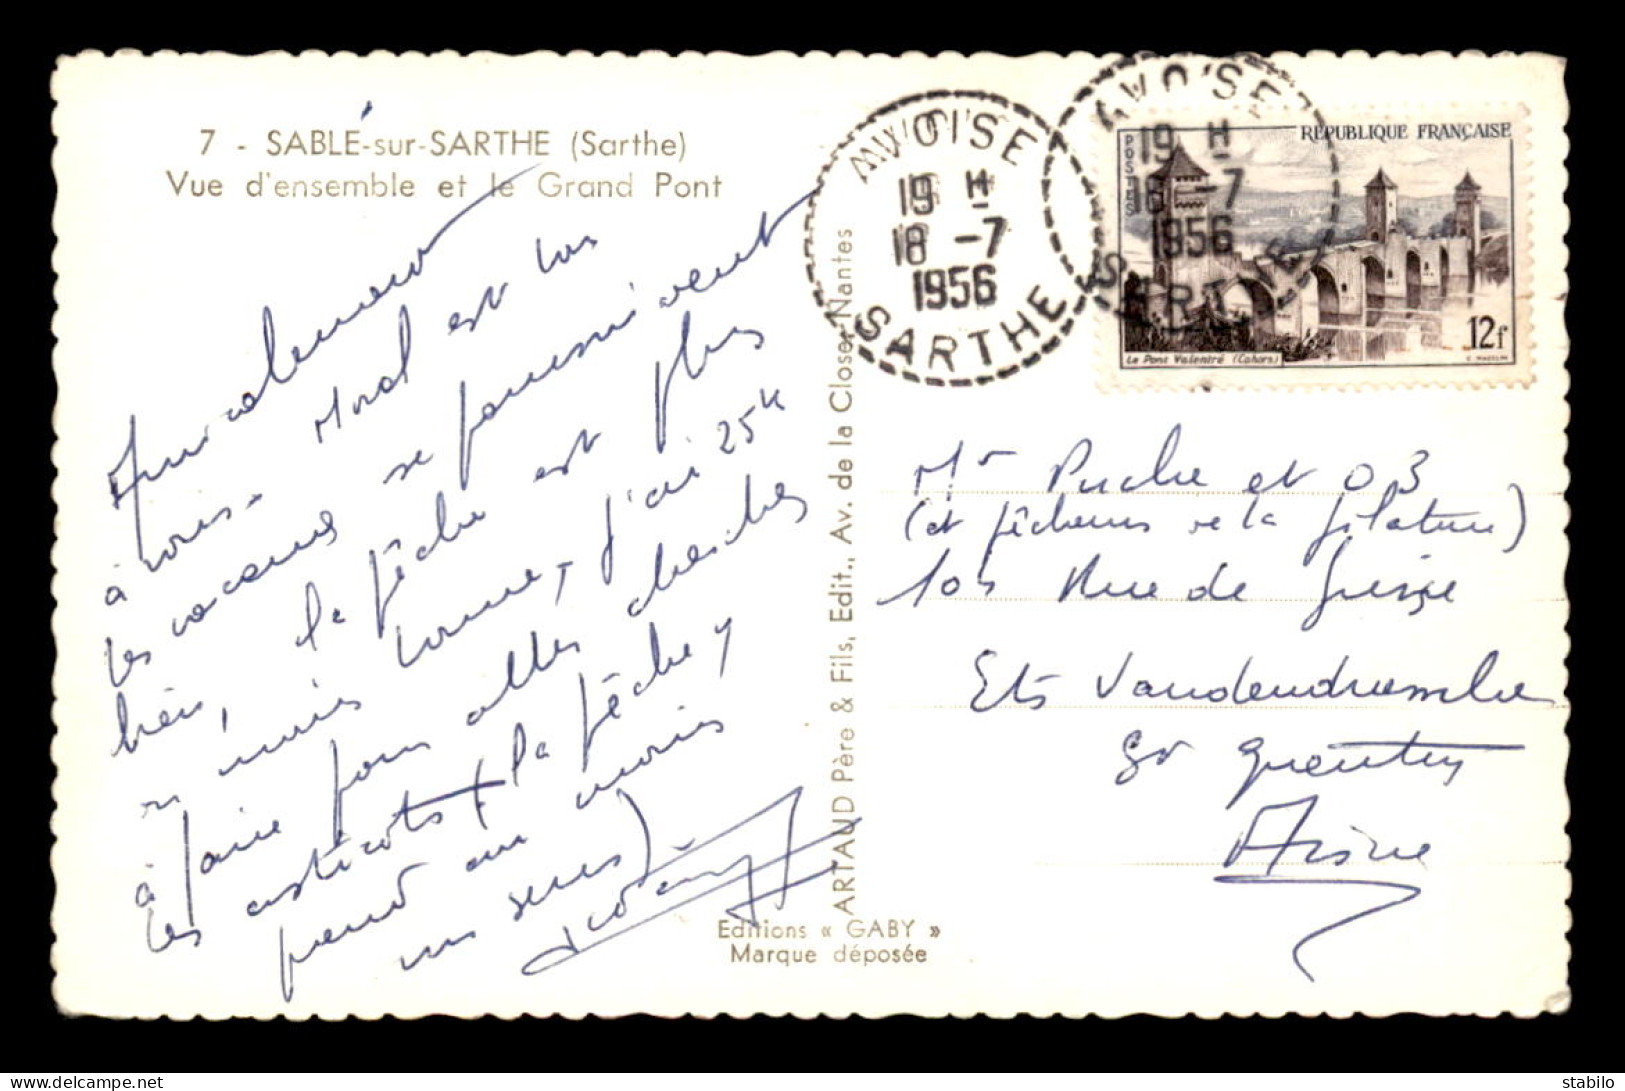 7 - SABLÉ-sur-SARTHE (Sarthe)
Vue d'ensemble et le Grand Pont
Moral est bon
à vous.
les vacances se poursuivent
bien, la pêche est plus
mais bonne, j'ai 25 k
à faire pour aller chercher
les asticots (la pêche y
perd au moins
un sens)
ARTAUD Père & Fils, Edit., Av. de la Close, Nantes
Editions « GABY »
Marque déposée
AVOISE
19 H
18 -7
1956
SARTHE
AVOISE
19 H
18 -7
1956
SARTHE
RÉPUBLIQUE FRANÇAISE
POSTES
12f
Le Pont Valentré (Cahors)
Mr Puche et 03
(et pêcheurs de la filature)
Rue de Guise
Ets Vandendriessche
St Quentin
Aisne
stabilo